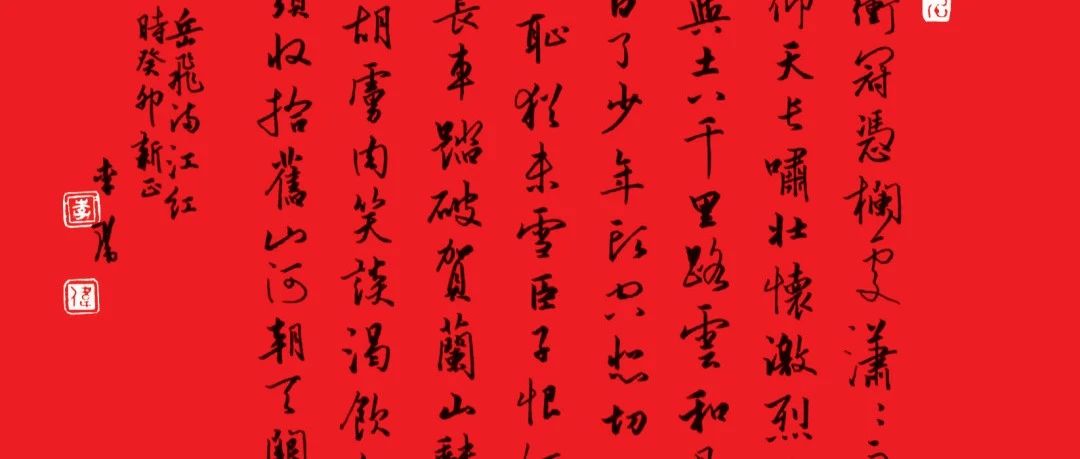 衝冠憑欄處瀟〻
仰天長嘯壯懷激烈
與土八千里路雲和
白了少年頭空悲切
恥猶未雪臣子恨
長車踏破賀蘭山
胡虜肉笑談渴飲
收拾舊山河朝天闕
岳飛滿江红
時癸卯新正
李
李
偉